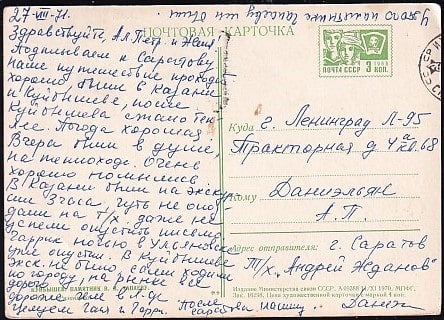 27-VIII-71.
Здравствуйте, Ал. Петр. и Женя!
Подплываем к Саратову
наше путешествие проходит
хорошо были в Казани
и Куйбышеве, после
Куйбышева стало теп
лее. Погода хорошая
Вчера были в душе,
на теплоходе. Очень
хорошо помылись
В Казани были на экскур
сии 3 часа, чуть не опоз
дали на т/х. даже не
успели опустить письмо
Гаррик ночью в Ульяновске
уже опустил. В Куйбышеве
экс. не было, сами ходили
по городу, на рынке все
дороже чем в Л-де
Целуем Саня и Гарри. После
Саратова напишу. Даниэл
У этого памятника Чапаеву мы были
ПОЧТОВАЯ КАРТОЧКА
ПОЧТА СССР 1966
3 КОП.
Куда г. Ленинград Л-95
Тракторная д 4а кв. 68
Кому Даниэльян
А. П.
Адрес отправителя: г. Саратов
Т/х "Андрей Жданов"
КУЙБЫШЕВ. ПАМЯТНИК В. И. ЧАПАЕВУ.
Издание Министерства связи СССР. 1970. МПФГ.
Зак. 10298. Цена художественной карточки с маркой 4 коп.